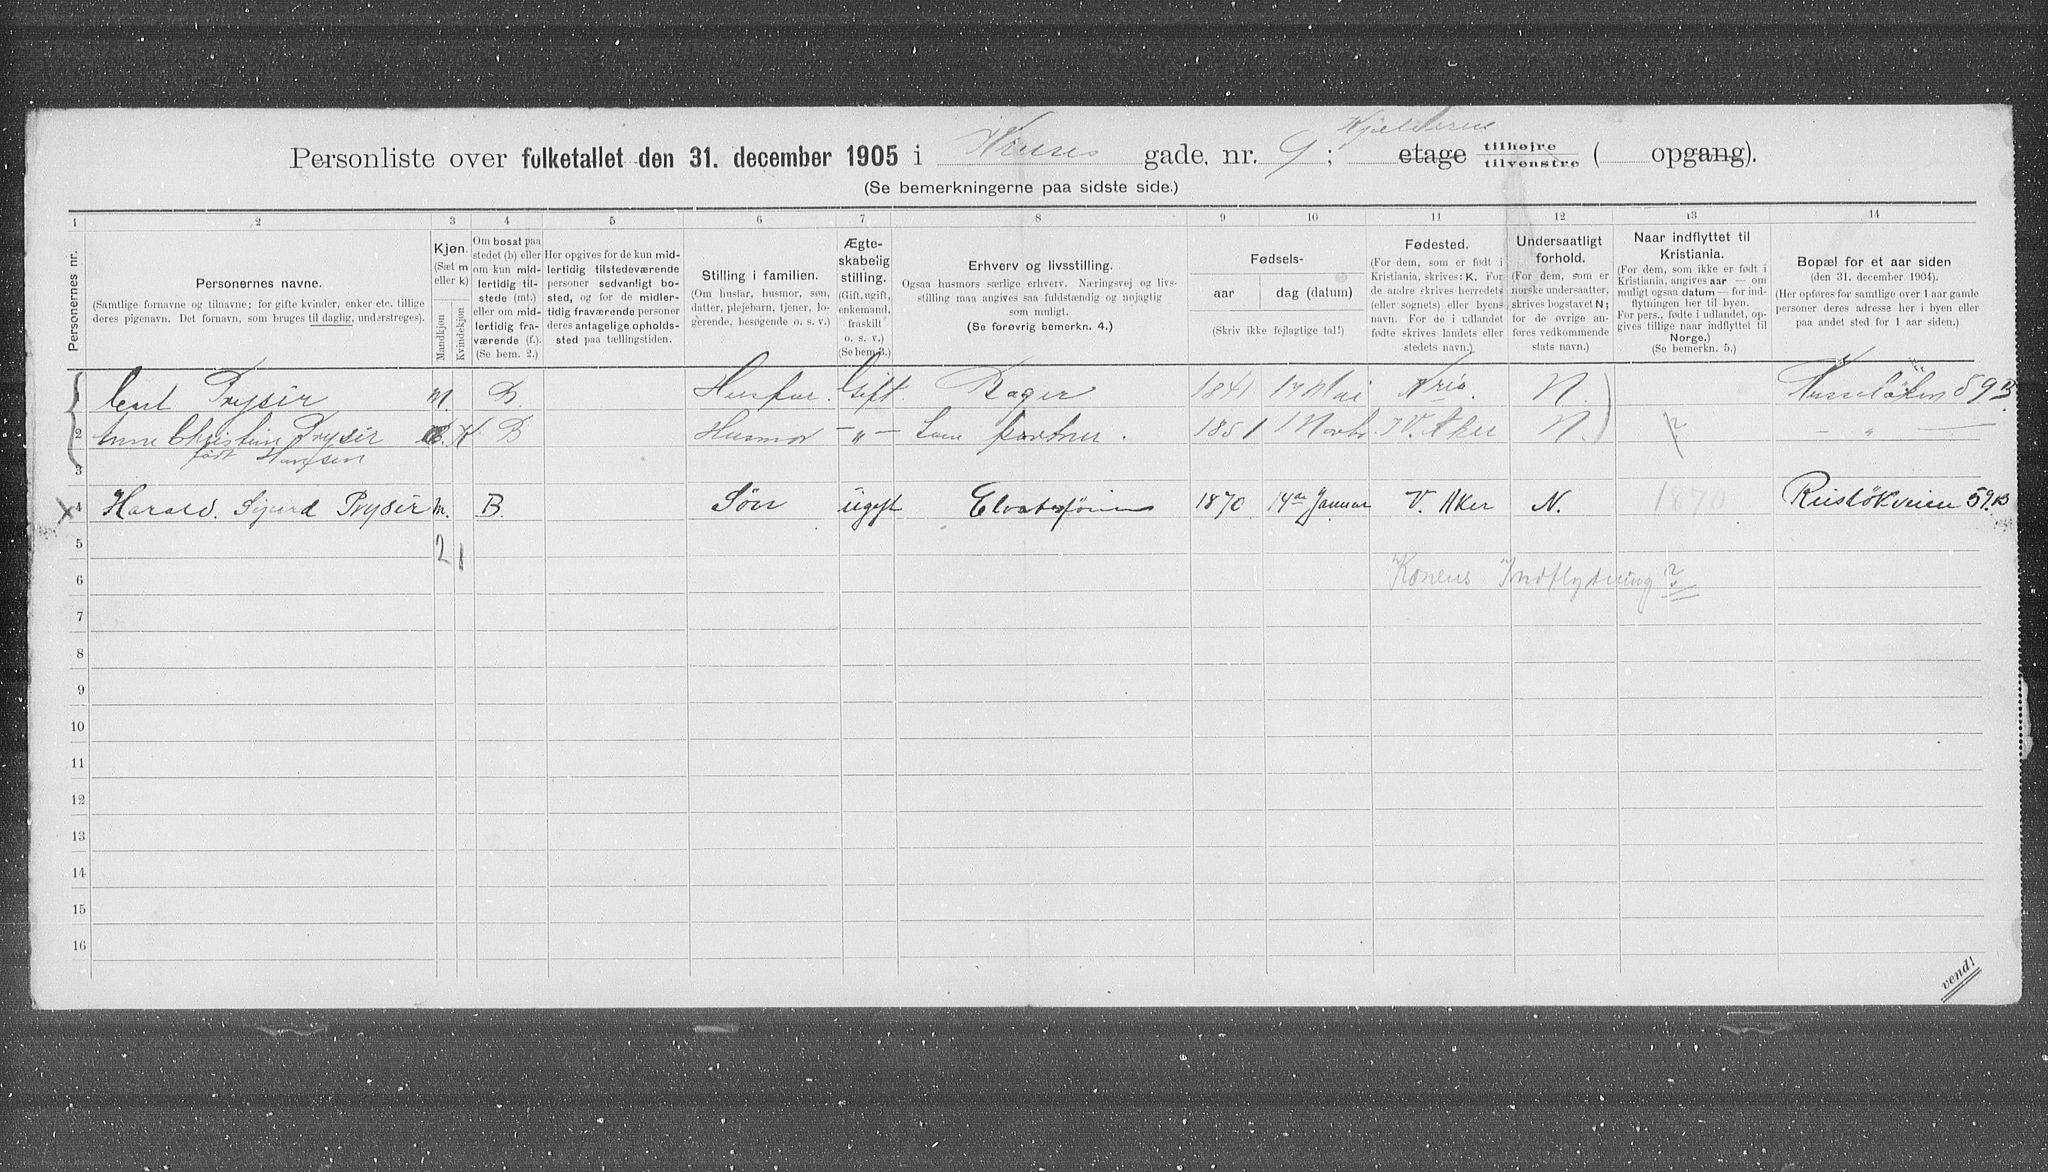 Kjelderen
Personliste over folketallet den 31. december 1905 i Wessels gade, nr. 9; etage tilhøjre tilvenstre ( opgang).
(Se bemerkningerne paa sidste side.)
1 2 3 4 5 6 7 8 9 10 11 12 13 14
Personernes nr.
Personernes navne.
(Samtlige fornavne og tilnavne; for gifte kvinder, enker etc. tillige
deres pigenavn. Det fornavn, som bruges til daglig, understreges).
Kjøn.
(Sæt m
eller k)
Mandkjøn
Kvindekjøn
Om bosat paa
stedet (b) eller
om kun mid-
lertidig til-
stede (mt.)
eller om mid-
lertidig fra-
værende (f.).
(Se bem. 2.)
Her opgives for de kun mid-
lertidig tilstedeværende
personer sedvanlig bo-
sted, og for de midler-
tidig fraværende personer
deres antagelige ophold-
sted paa tællingstiden.
Stilling i familien.
(Om husfar, husmor, søn,
datter, plejebarn, tjener, lo-
gerende, besøgende o. s. v.)
Ægte-
skabelig
stilling.
(Gift, ugift,
enkemand,
fraskilt
o. s. v.)
(Se bem. 3.)
Erhverv og livsstilling.
Ogsaa husmors særlige erhverv. Næringsvej og livs-
stilling maa angives saa fuldstændig og nøjagtig
som muligt.
(Se forøvrig bemerkn. 4.)
Fødsels-
aar dag (datum)
(Skriv ikke fejlagtige tal!)
Fødested.
(For dem, som er født i
Kristiania, skrives: K. For
de andre skrives herredets
(eller sognets) eller byens
navn. For de i udlandet
fødte skrives landets eller
stedets navn.)
Undersaatligt
forhold.
(For dem, som er
norske undersaatter,
skrives bogstavet N;
for de øvrige an-
føres vedkommende
stats navn.)
Naar indflyttet til
Kristiania.
(For dem, som ikke er født i
Kristiania, angives aar — om
muligt ogsaa datum — for ind-
flytningen her til byen.
For pers., fødte i udlandet, op-
gives tillige naar indflyttet til
Norge.)
(Se bemerkn. 5.)
Bopæl for et aar siden
(den 31. december 1904).
(Her opføres for samtlige over 1 aar gamle
personer deres adresse her i byen eller
paa andet sted for 1 aar siden.)
Carl Prysir m. B. Husfar. Gift. Bager 1841 17 Mai Kria. N. 59 B
2 Anne Christine Prysir K B Husmor -„- 1851 1 Novbr. V. Aker N. ? — „ —
født Hansen
3
4 Harald. Sigurd Prysir m. B. Søn ugift 1870 14de Januar V. Aker N. 1870 Rusløkveien 59.B
5 2 1
6 Konens Indflydning ?
7
8
9
10
11
12
13
14
15
16
vend!